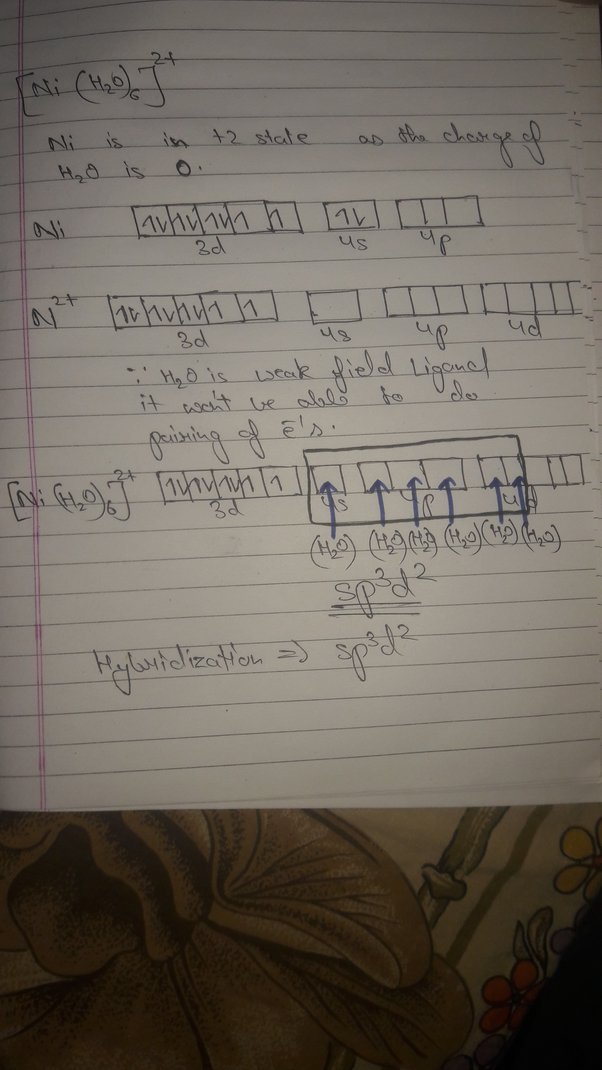 [Ni (H₂O)₆]²⁺
Ni is in +2 state as the charge of
H₂O is 0.
Ni 3d 4s 4p
N²⁺ 3d 4s 4p 4d
∵ H₂O is weak field Ligand
it won't be able to do
pairing of ē's.
[Ni (H₂O)₆]²⁺ 3d 4s 4p 4d
(H₂O) (H₂O) (H₂O) (H₂O) (H₂O) (H₂O)
sp³d²
Hybridization => sp³d²